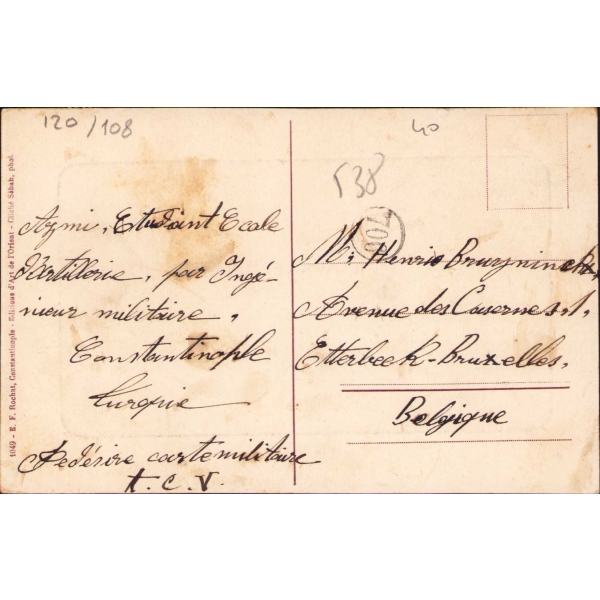 120/108
40
538
700
Azmi, Etudiant Ecole
d'Artillerie, par Ingé-
nieur militaire,
Constantinople
Turquie
Je désire carte militaire
t. C. V.
M: Henrie Bruyninckx,
Avenue des Casernes, 1,
Etterbeck-Bruxelles.
Belgique
1049 - E. F. Rochat, Constantinople - Editions d'Art de l'Orient - Cliché Sébah, phot.